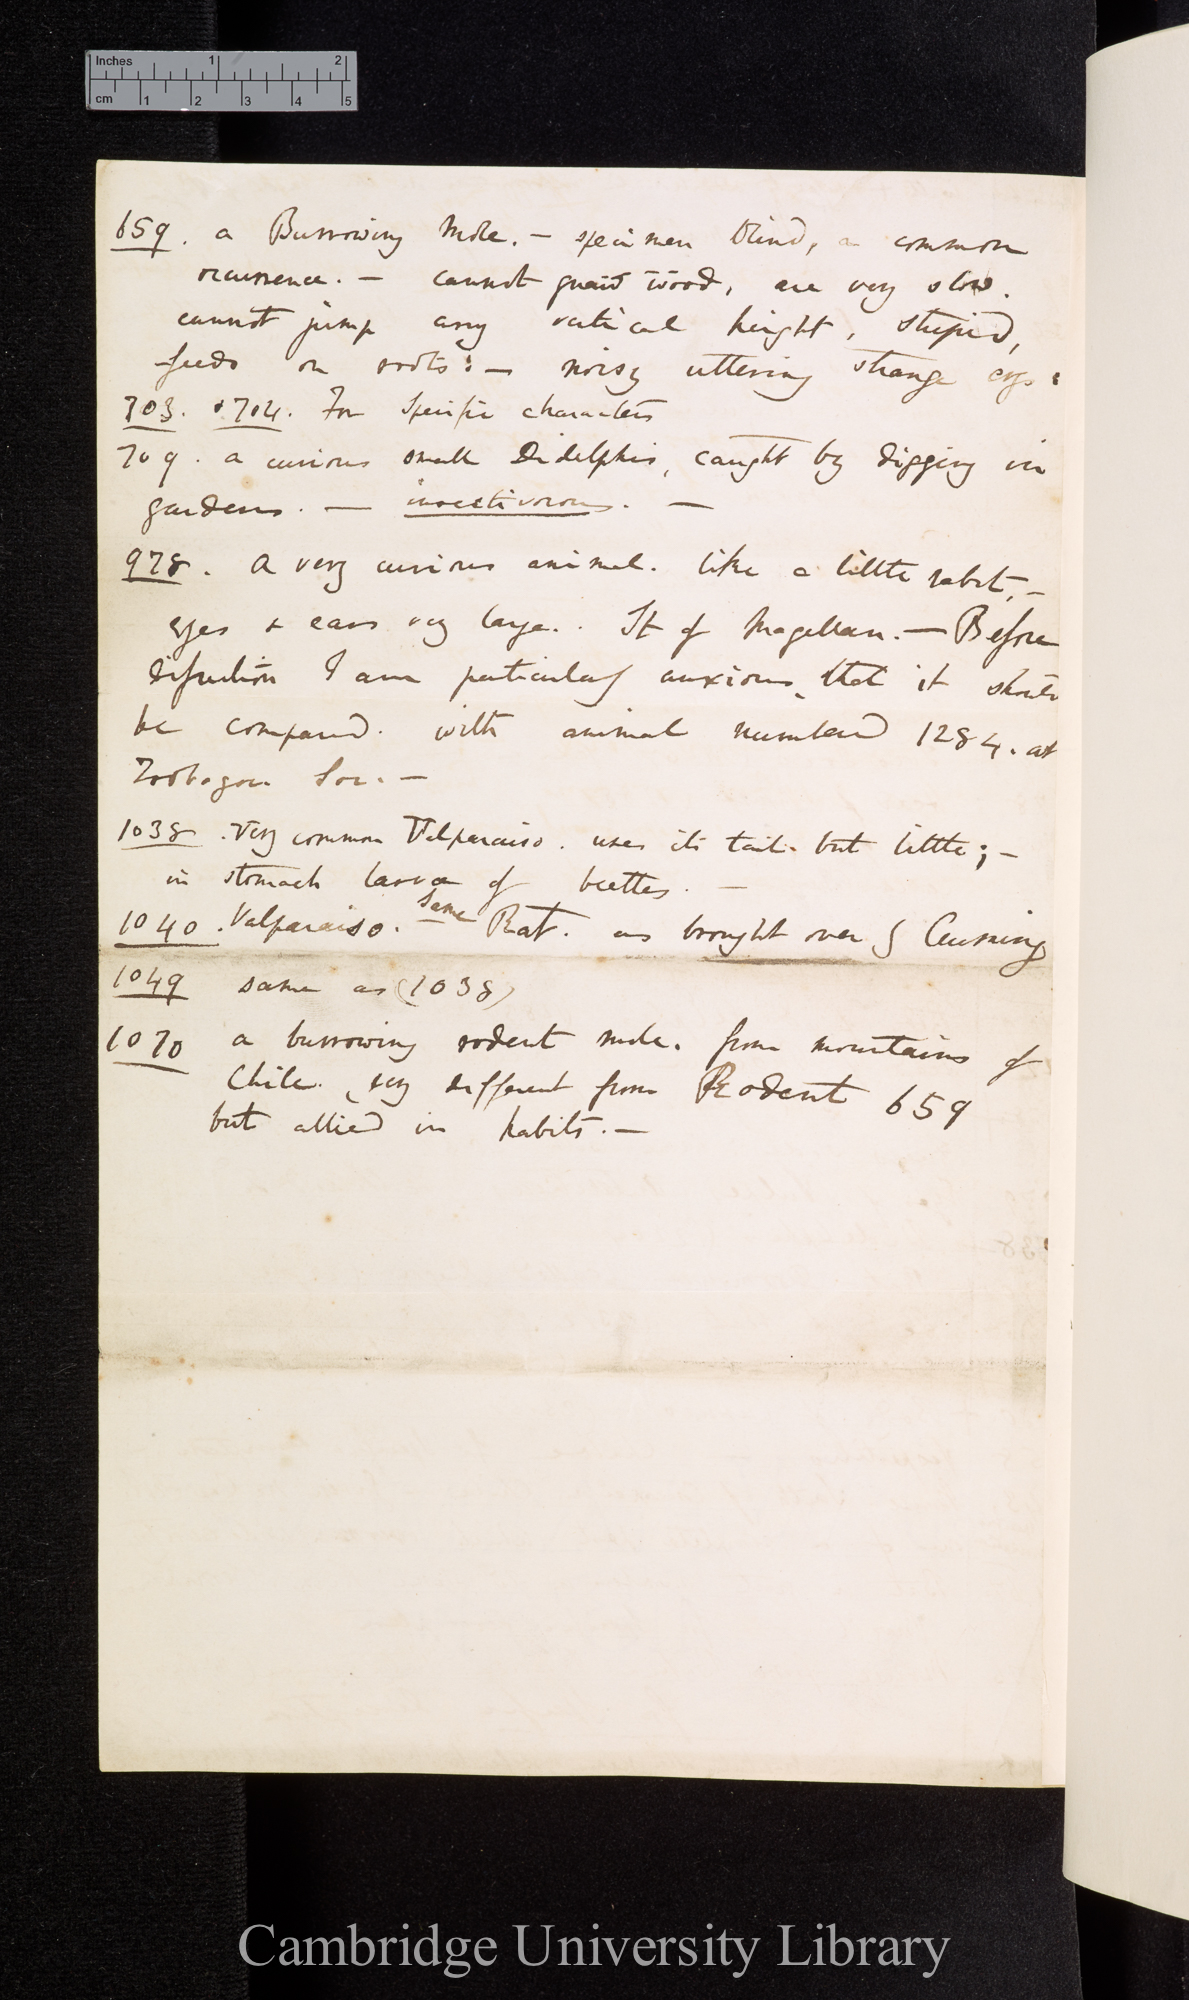 Inches 1 2
cm 1 2 3 4 5
659. a Burrowing Mole. — specimen blind, a common
occurrence. — cannot gnaw wood, are very slow.
cannot jump any vertical height, stupid,
feeds on roots: — noisy uttering strange crys:
703. & 704. For Specific characters
709. a curious small Didelphis, caught by digging in
gardens. — insectivorous. —
978. A very curious animal. like a little rabit, —
eyes & ears very large. St of Magellan. — Before
dissection I am particularly anxious that it should
be compared with animal numbered 1284. at
Zoolog Soc. —
1038. Very common Valparaiso. uses its tail but little; —
in stomach larvæ of beetles. —
1040. Valparaiso. Same Rat. as brought over by Cuming
1049 same as (1038)
1070 a burrowing rodent mole. from mountains of
Chile. very different from Rodent 659
but allied in habits. —
Cambridge University Library